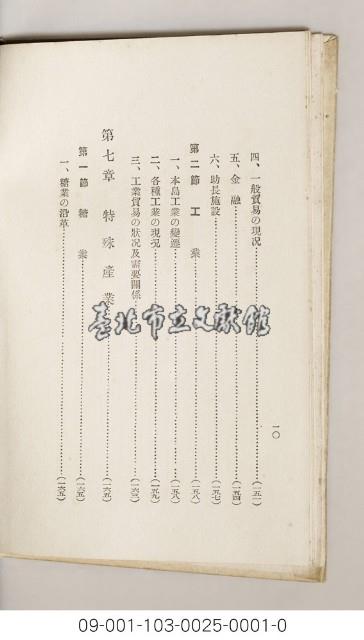 四、一般貿易の現況……(一五一)
五、金融……(一五四)
六、助長施設……(一五七)
第二節 工業……(一五八)
一、本島工業の變遷……(一五八)
二、各種工業の現況……(一五九)
三、工業貿易の狀況及需要關係……(一六三)
第七章 特殊產業……(一六五)
第一節 糖業……(一六五)
一、糖業の沿革……(一六五)
一〇
臺北市立文獻館
09-001-103-0025-0001-0